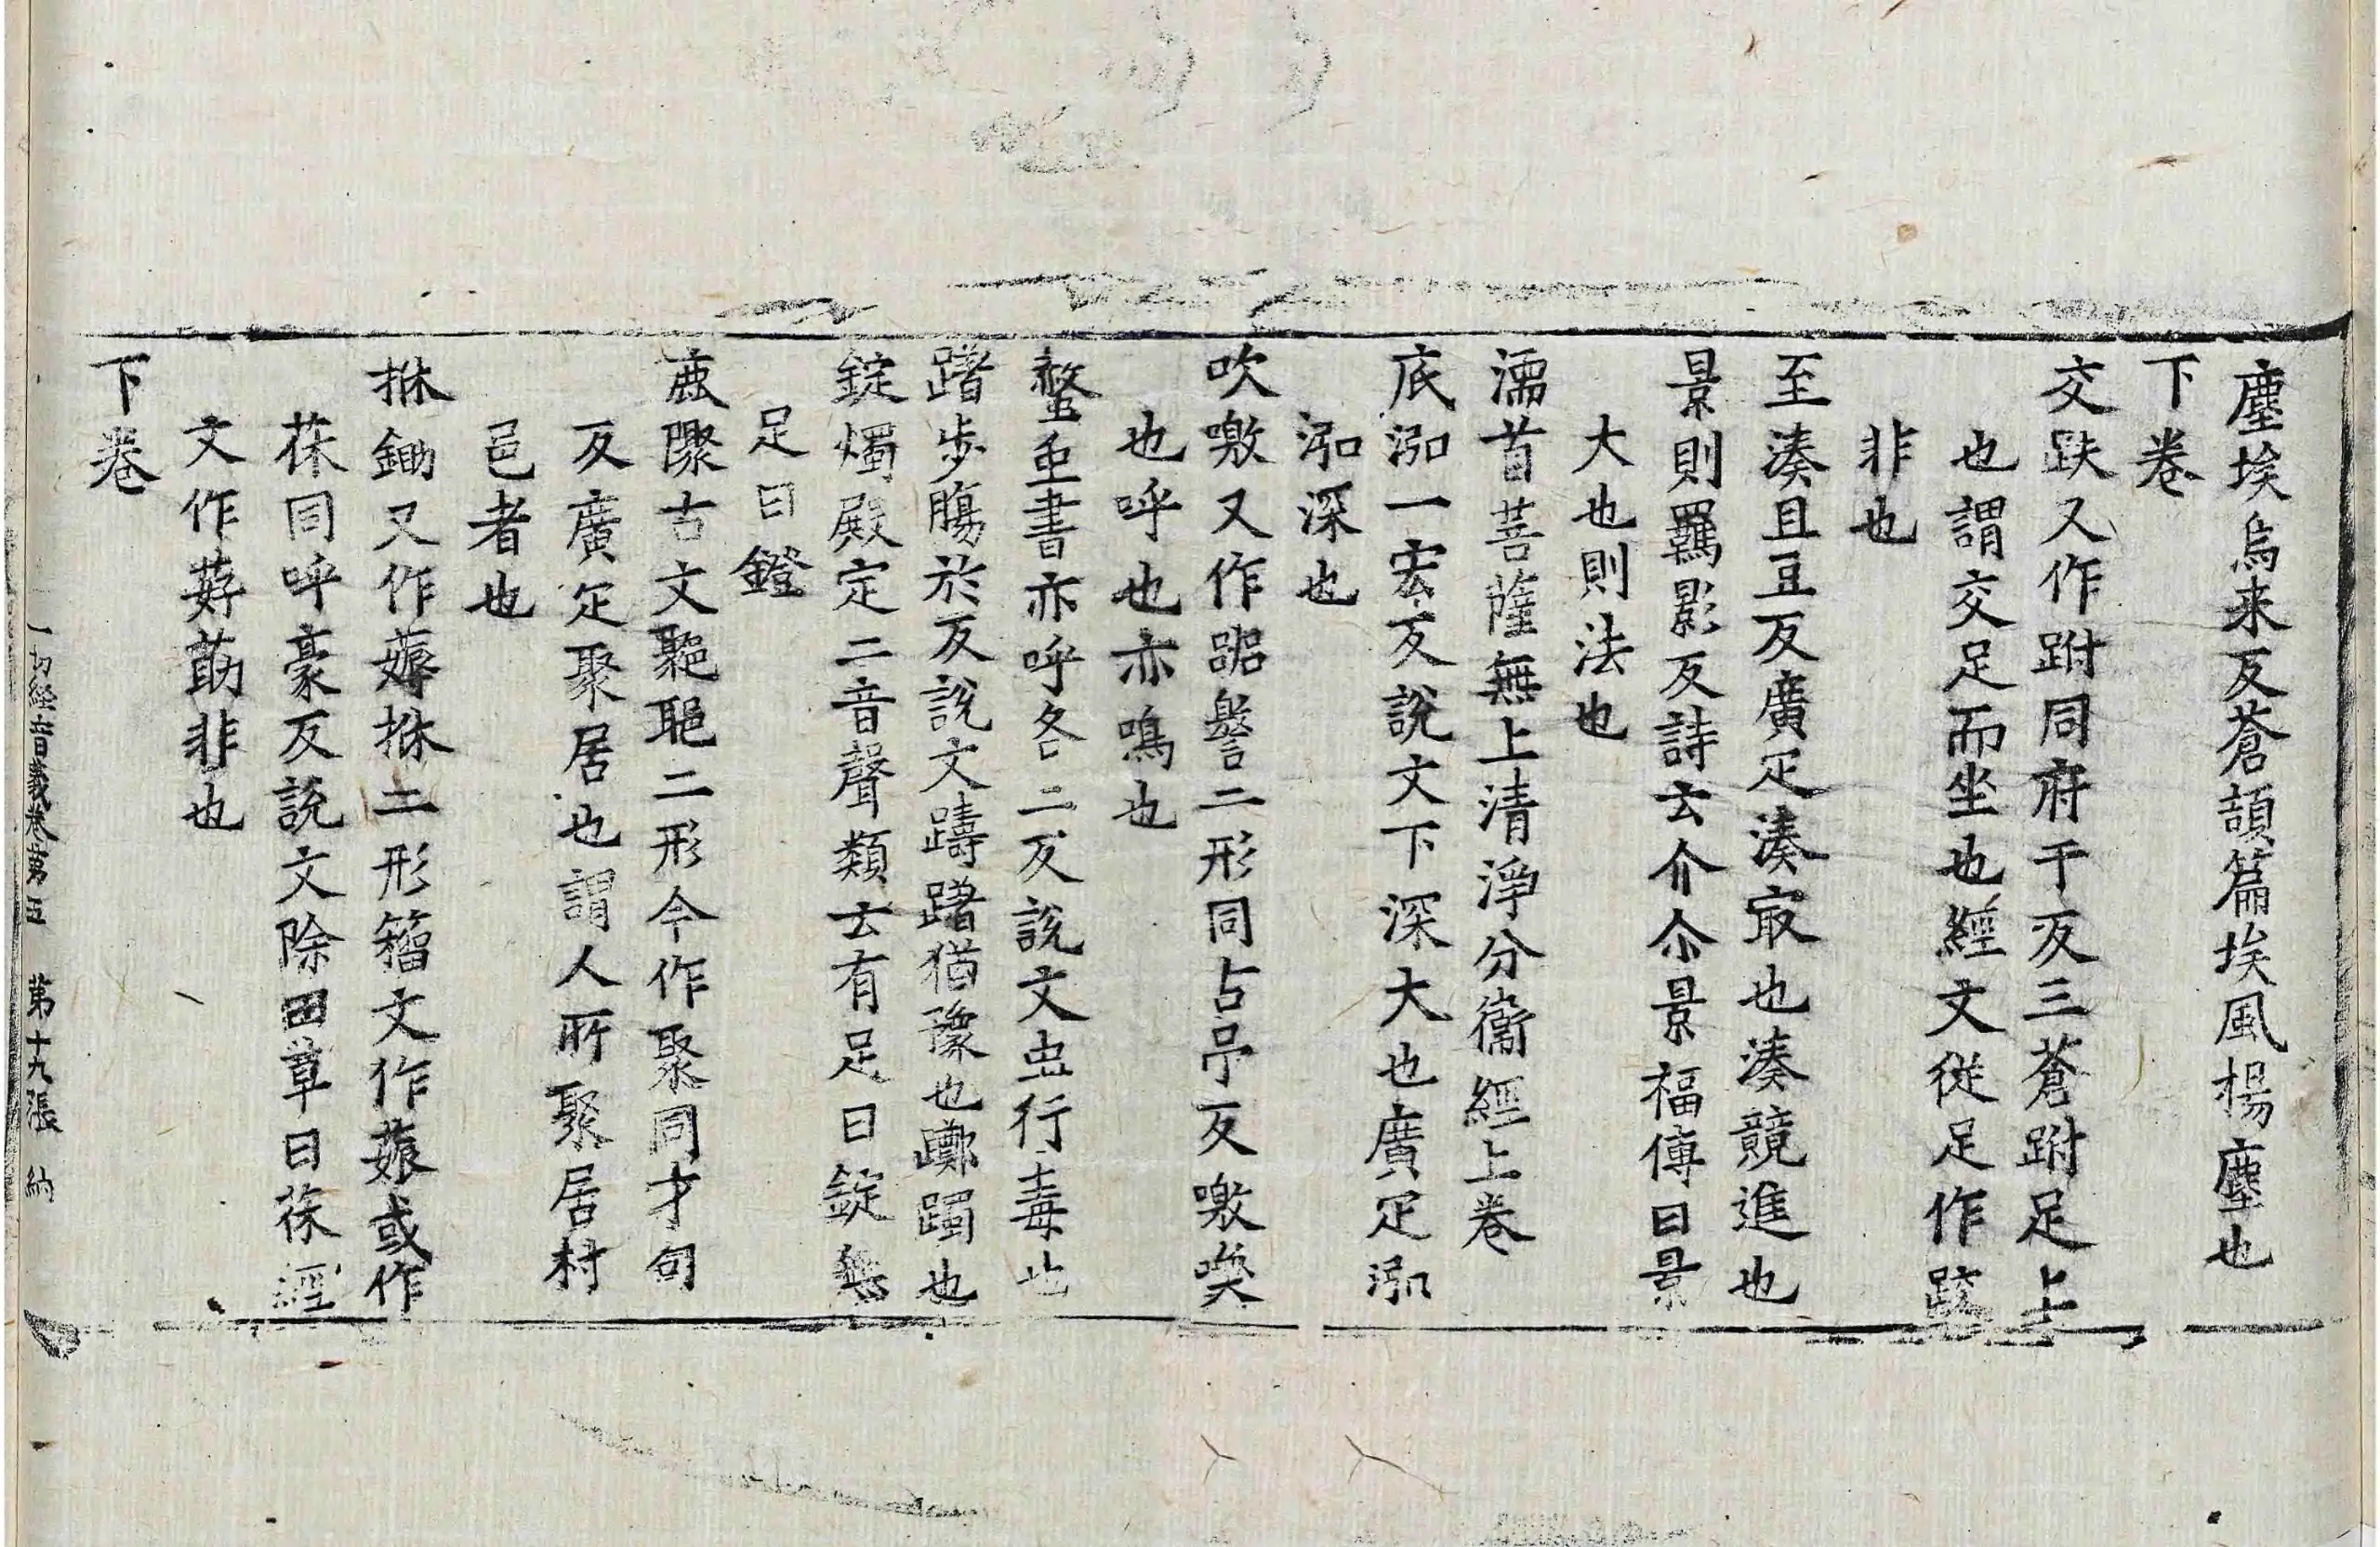 塵埃烏来反蒼頡篇埃風揚塵也
下卷
交趺又作跗同府于反三蒼跗足上
也謂交足而坐也經文從足作䟦
非也
至湊且豆反廣疋湊㝡也湊競進也
景則羈影反詩云介尒景福傳曰景
大也則法也
濡首菩薩無上清淨分衞經上卷
底泓一宏反說文下深大也廣疋泓
泓深也
吹噭又作䛐譥二形同古吊反噭喚
也呼也亦鳴也
螫䖝書亦呼各二反說文虫行毒也
躇步腸於反說文躊躇猶豫也躑躅也
錠燭殿定二音聲類云有足曰錠無
足曰鐙
鹿聚古文二形今作聚同才句
反廣疋聚居也謂人所聚居村
邑者也
揪鋤又作薅二形籀文作薅或作
茠同呼豪反說文除田草曰茠經
文作莇非也
下卷
一切經音義卷第五 第十九張 納